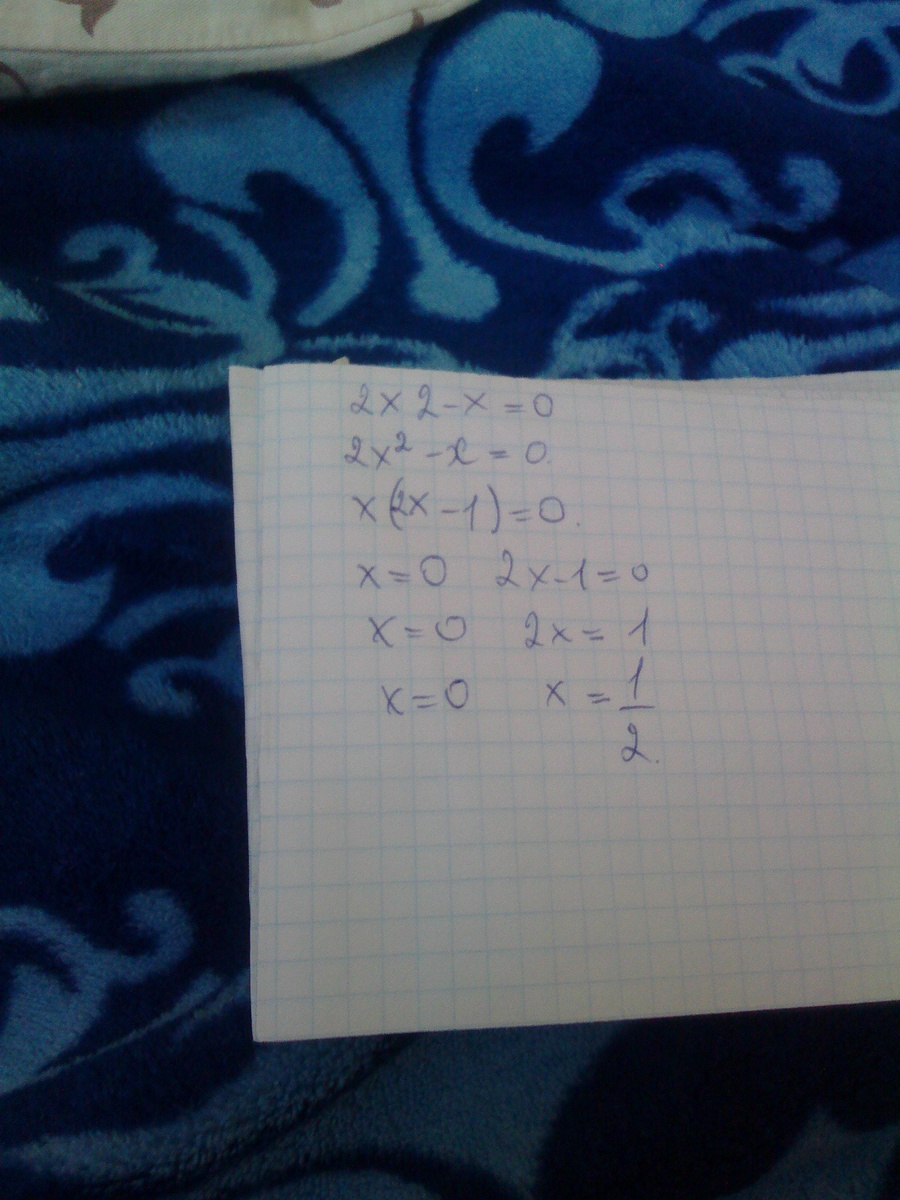 2x 2-x=0
2x²-x=0.
x(2x-1)=0.
x=0 2x-1=0
x=0 2x=1
x=0 x=1/2.